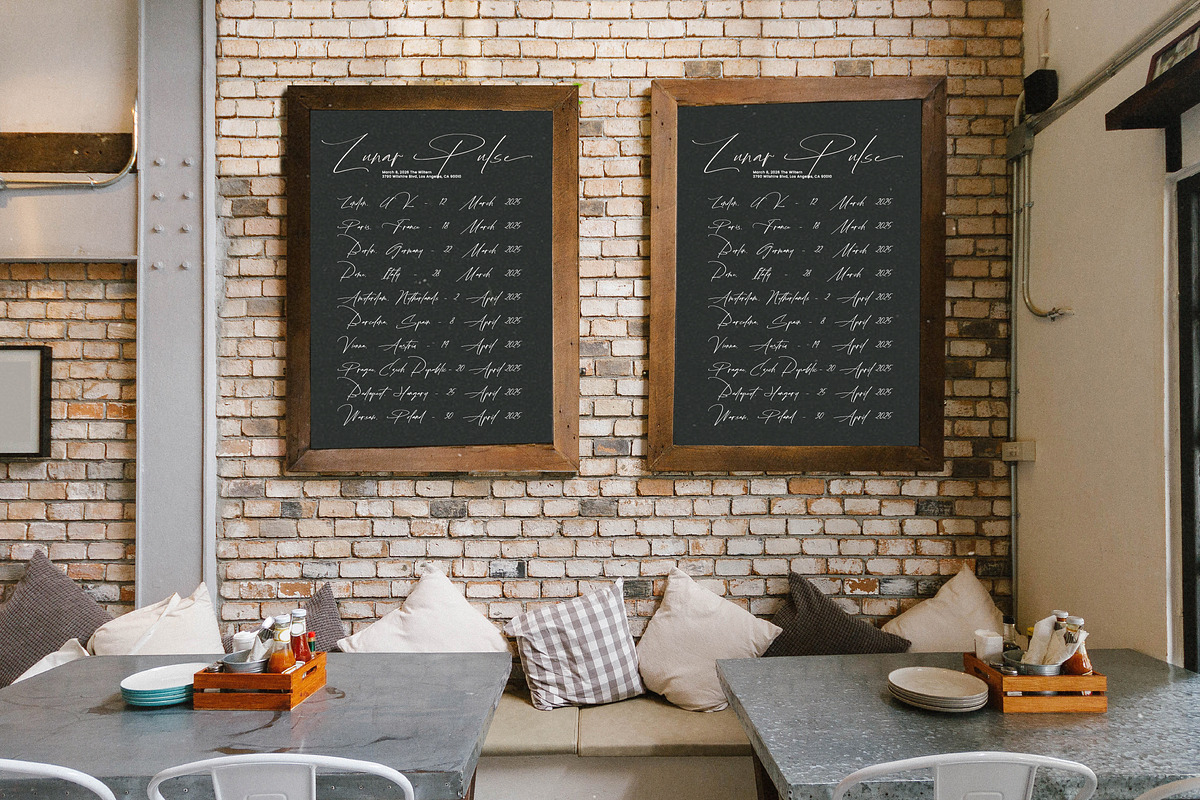 Lunar Pulse
March 8, 2026 The Wiltern
3790 Wilshire Blvd, Los Angeles, CA 90010
London, UK - 12 March 2025
Paris, France - 18 March 2025
Berlin, Germany - 22 March 2025
Rome, Italy - 28 March 2025
Amsterdam, Netherlands - 2 April 2025
Barcelona, Spain - 8 April 2025
Vienna, Austria - April 2025
Prague, Czech Republic - 20 April 2025
Budapest, Hungary - 25 April 2025
Warsaw, Poland - 30 April 2025
Lunar Pulse
March 8, 2026 The Wiltern
3790 Wilshire Blvd, Los Angeles, CA 90010
London, UK - 12 March 2025
Paris, France - 18 March 2025
Berlin, Germany - 22 March 2025
Rome, Italy - 28 March 2025
Amsterdam, Netherlands - 2 April 2025
Barcelona, Spain - 8 April 2025
Vienna, Austria - April 2025
Prague, Czech Republic - 20 April 2025
Budapest, Hungary - 25 April 2025
Warsaw, Poland - 30 April 2025